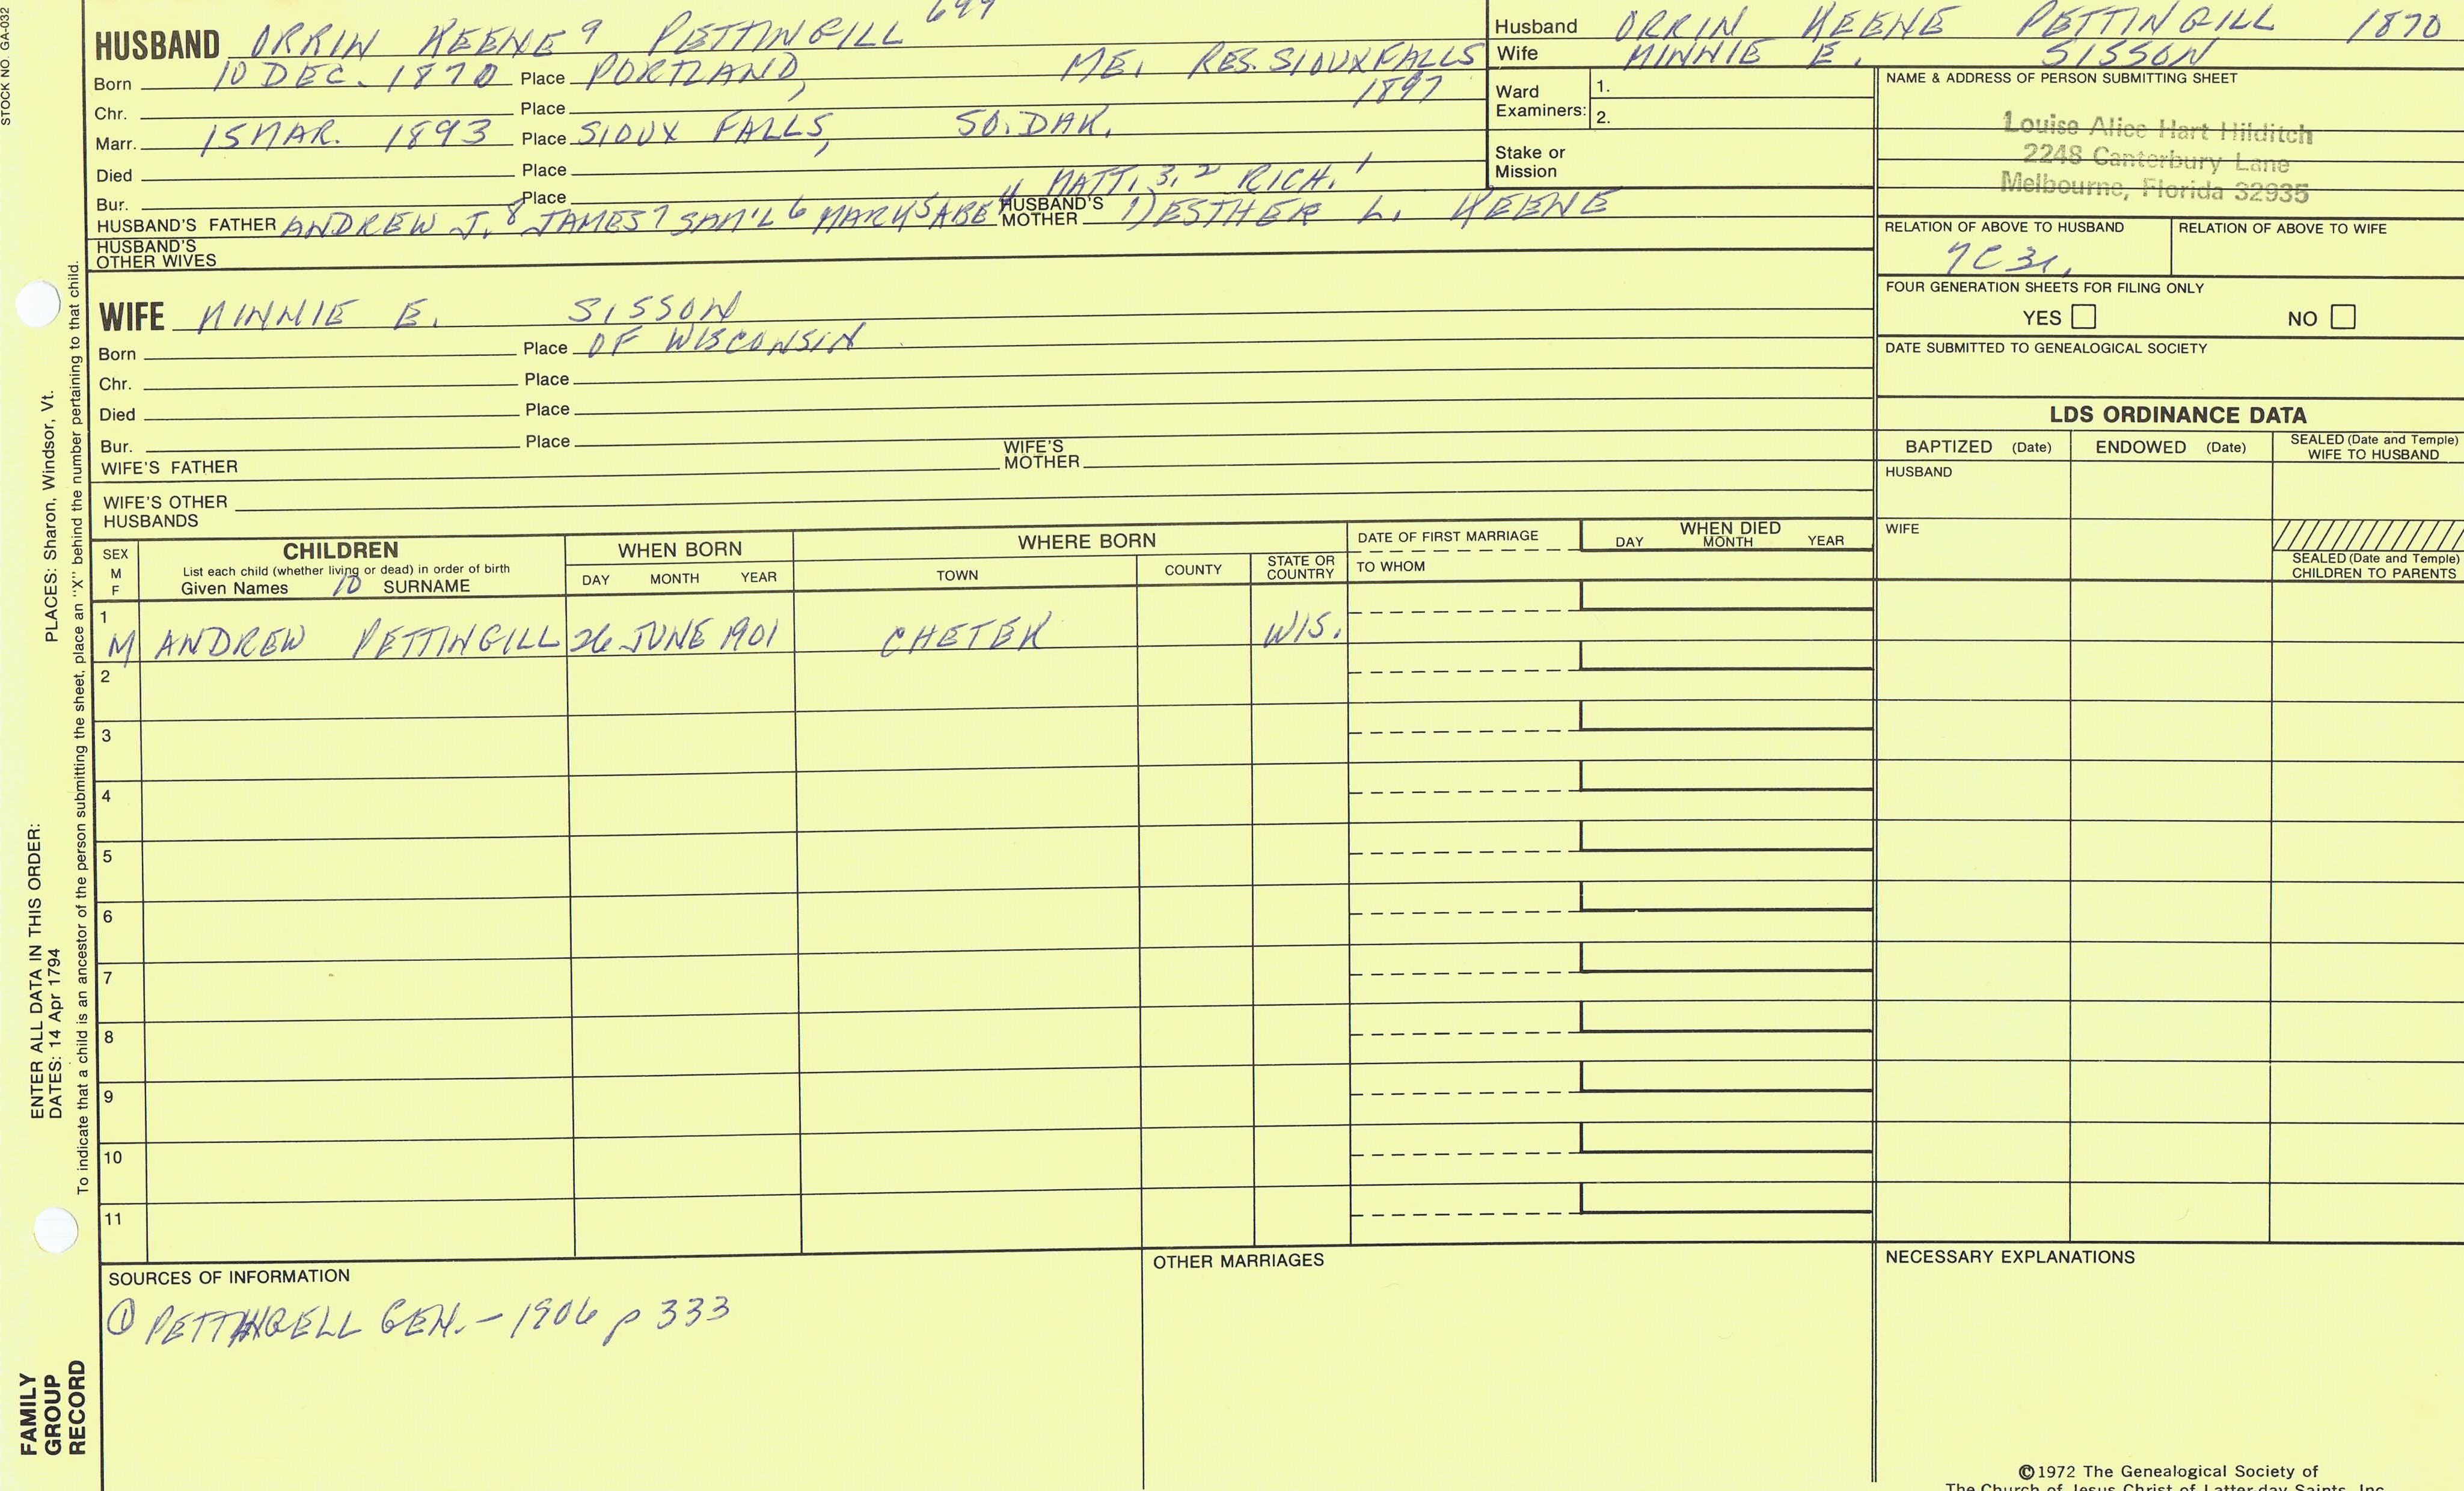 STOCK NO. GA-032
699
HUSBAND ORRIN KEENE 9 PETTINGILL
Born 10 DEC. 1870 Place PORTLAND, ME, RES. SIOUX FALLS
1897
Chr. Place
Marr. 15 MAR. 1893 Place SIOUX FALLS, SO. DAK.
Died Place
Bur. Place
4 MATT. 3, 2 RICH. 1
HUSBAND'S FATHER ANDREW J. 8 JAMES 7 SAM'L 6 MARK 5 ABE HUSBAND'S MOTHER 1) ESTHER L. KEENE
HUSBAND'S OTHER WIVES
WIFE MINNIE E. SISSON
Born Place OF WISCONSIN
Chr. Place
Died Place
Bur. Place
WIFE'S FATHER WIFE'S MOTHER
WIFE'S OTHER HUSBANDS
Husband ORRIN KEENE PETTINGILL 1870
Wife MINNIE E. SISSON
Ward Examiners: 1.
2.
Stake or Mission
NAME & ADDRESS OF PERSON SUBMITTING SHEET
Louise Alice Hart Hilditch
2248 Canterbury Lane
Melbourne, Florida 32935
RELATION OF ABOVE TO HUSBAND RELATION OF ABOVE TO WIFE
7C3r.
FOUR GENERATION SHEETS FOR FILING ONLY
YES NO
DATE SUBMITTED TO GENEALOGICAL SOCIETY
LDS ORDINANCE DATA
BAPTIZED (Date) ENDOWED (Date) SEALED (Date and Temple) WIFE TO HUSBAND
HUSBAND
WIFE
SEALED (Date and Temple) CHILDREN TO PARENTS
SEX M F
CHILDREN
List each child (whether living or dead) in order of birth
Given Names 10 SURNAME
WHEN BORN
DAY MONTH YEAR
WHERE BORN
TOWN COUNTY STATE OR COUNTRY
DATE OF FIRST MARRIAGE
TO WHOM
WHEN DIED
DAY MONTH YEAR
1 M ANDREW PETTINGILL 26 JUNE 1901 CHETEK WIS.
2
3
4
5
6
7
8
9
10
11
SOURCES OF INFORMATION
① PETTINGELL GEN. - 1906 p 333
OTHER MARRIAGES
NECESSARY EXPLANATIONS
©1972 The Genealogical Society of
The Church of Jesus Christ of Latter-day Saints, Inc.
PLACES: Sharon, Windsor, Vt.
ENTER ALL DATA IN THIS ORDER:
DATES: 14 Apr 1794
To indicate that a child is an ancestor of the person submitting the sheet, place an "X" behind the number pertaining to that child.
FAMILY
GROUP
RECORD